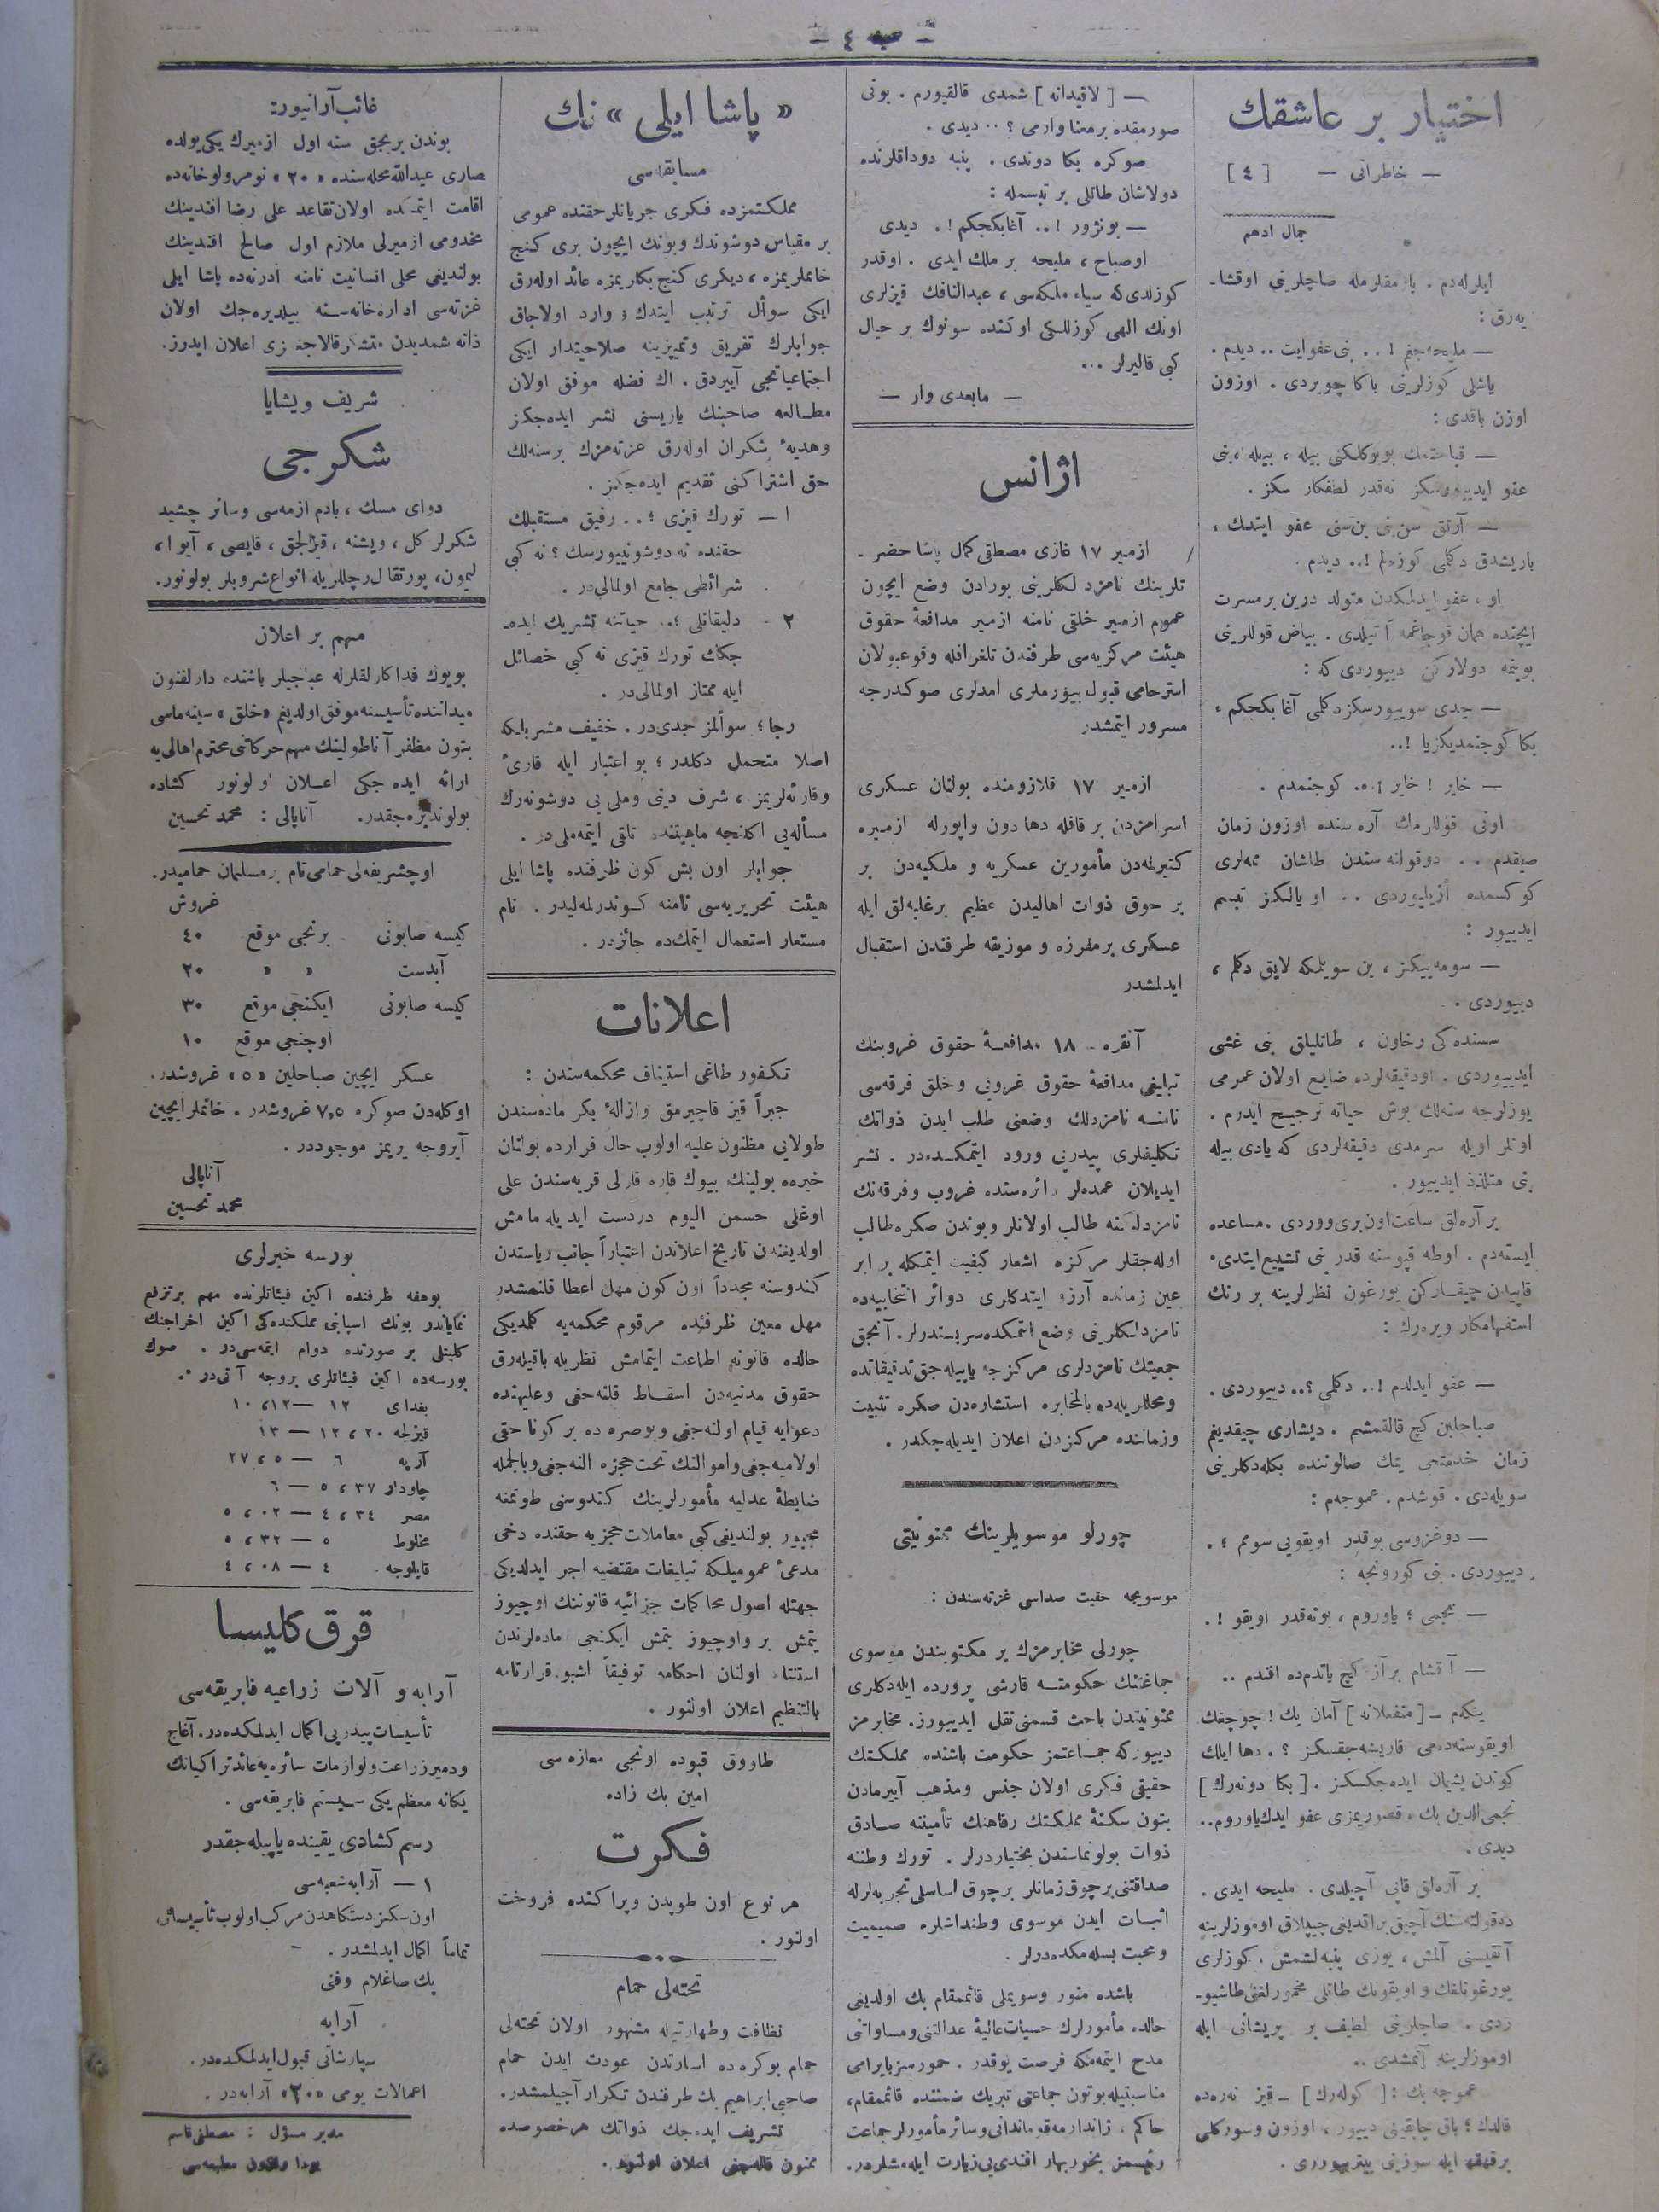 — ٤ —
اختيار بر عاشقك
— خاطراتی — [٤]
جمال ادهم
ايلرلەدم . پارمقلرمله صاچلرينی اوقشا-
يەرق :
— مليحەجغم ! . . بنی عفو ايت . . ديدم .
ياشلی كوزلرينی باكا چويردی . اوزون
اوزن باقدی :
— قباحتمك بويوكلكنی بيله ، بيله ، بنی
عفو ايدييورسكز نەقدر لطفكار سكز .
— آرتق سن بنی بن سنی عفو ايتدك ،
باريشدق دكلمی كوزلم !.. ديدم .
او ، عفو ايدلمكدن متولد درين بر مسرت
ايچنده همان قوجاغمه آتيلدی . بياض قوللرينی
بوينمه دولاركن دييوردی كه :
— جدی سوييورسكز دكلمی آغا بكجكم ،
بكا كوجنمديكزيا !..
— خاير ! خاير !.. كوجنمدم .
اونی قوللرمك آره سنده اوزون زمان
صيقدم . . دوقولته سندن طاشان ممەلری
كوكسمده أزيلييوردی . . او يالكز تبسم
ايدييور :
— سومەييكز ، بن سويلمكه لايق دكلم ،
دييوردی .
سسنده كی رخاون ، طاتليلق بنی غشی
ايدييوردی . اودقيقەلرده ضايع اولان عمرمی
يوزلرجه سنەلك بوش حياته ترجيح ايدرم .
اونلر اويله سرمدی دقيقەلردی كه يادی بيله
بنی متلذذ ايدييور .
بر آرەلق ساعت اون بری ووردی . مساعده
ايستەدم . اوطه قپوسنه قدر بنی تشييع ايتدی .
قاپيدن چيقاركن يورغون نظرلرينه بر رنك
استفهامكار ويرەرك :
— عفو ايدلدم !.. دكلمی ؟.. دييوردی .
صباحلين كچ قالقمشم . ديشاری چيقديغم
زمان خدمتجی يمك صالوننده بكلەدكلرينی
سويلەدی . قوشدم . عموجەم :
— دوغروسی بوقدر اويقويی سومم ؛
دييوردی . بنی كورونجه :
— نجمی ؛ ياوروم ، بوتەقدر اويقو !.
— آقشام برآز كچ ياتدم ده افندم ..
ينكەم — [منفعلانه] آمان بك ! چوجغك
اويقوسنەده می قاريشەجقسكز ؟ . دها ايلك
كوندن پشيمان ايده جكسكز . [بكا دونەرك]
نجمی الدين بك ، قصوريمزی عفو ايدك ياوروم..
ديدی .
بر آرەلق قاپی آچيلدی . مليحه ايدی .
دەقولتەسنك آچيق براقديغی چيپلاق اوموزلرينه
آتقيسنی آلمش ، يوزی پنبەلشمش . كوزلری
يورغونلغك و اويقونك طاتلی مخمورلغنی طاشيو-
ردی . صاچلرينی لطيف بر پريشانی ايله
اوموزلرينه آتمشدی ..
عموجه بك : [كولەرك] — قيز نەرەده
قالدك ؛ باق چاپقينی دييور ، اوزون وسوركلی
برقهقهه ايله سوزينی بيتريوردی .
— [لاقيدانه] شمدی قالقيورم . بونی
صورمقده برمعنا وارمی ؟ .. ديدی .
صوكره بكا دوندی . پنبه دوداقلرنده
دولاشان طاتلی بر تبسمله :
— بونژور !.. آغابكجكم !. ديدی
اوصباح ، مليحه بر ملك ايدی . اوقدر
كوزلدی كه سباء ملكەسی ، عبدالنافك قيزلری
اونك الهی كوزللكی اوكنده سونوك بر خيال
كبی قاليرلر ...
— مابعدی وار —
اژانس
ازمير ١٧ غازی مصطفی كمال پاشا حضر -
تلرينك نامزدلكلرينی بورادن وضع ايچون
عموم ازمير خلقی نامنه ازمير مدافعهٔ حقوق
هيئت مركزيەسی طرفندن تلغرافله وقوعبولان
استرحامی قبول بيورملری اهاليی صوكدرجه
مسرور ايتمشدر
ازمير ١٧ قلازومنده بولنان عسكری
اسرامزدن بر قافله دها دون واپورله ازميره
كتيرلمەدن مأمورين عسكريه و ملكيەدن بر
بر چوق ذوات اهاليدن عظيم برغلبەلق ايله
عسكری بر مفرزه و موزيقه طرفندن استقبال
ايدلمشدر
آنقره - ١٨ مدافعهٔ حقوق غروبنك
تبليغی مدافعهٔ حقوق غروبی وخلق فرقەسی
نامنه نامزدلك وضعنی طلب ايدن ذواتك
تكليفلری پيدرپی ورود ايتمكدەدر . نشر
ايديلان عمدەلر دائره سنده غروب وفرقەنك
نامزدلكنه طالب اولانلر وبوندن صكره طالب
اولەجقلر مركزه اشعار كيفيت ايتمكله برابر
عين زمانده آرزو ايتدكلری دوائر انتخابيەده
نامزدلكلرينی وضع ايتمكده سربستدرلر. آنجق
جمعيتك نامزدلری مركزجه ياپيلەجق تدقيقاتده
ومحللريله ده بالمخابره استشارەدن صكره تثبيت
وزماننده مركزدن اعلان ايديلەجكدر .
چورلو موسويلرينك ممنونيتی
موسويجه حقيت صداسی غزتەسندن :
چورلی مخابرمزك بر مكتوبندن موسوی
جماعتنك حكومته قارشی پرورده ايلەدكلری
ممنونيتدن باحث قسمنی نقل ايدييورز. مخابرمز
دييوركه جماعتمز حكومت باشنده مملكتك
حقيقی فكری اولان جنس ومذهب آييرمادن
بتون سكنهٔ مملكتك رفاهنك تأميننه صادق
ذوات بولونماسندن بختياردرلر . تورك وطننه
صداقتنی برچوق زمانلر برچوق اساسلی تجربەلرله
اثبات ايدن موسوی وطنداشلره صميميت
ومحبت بسلەمكدەدرلر .
باشده منور وسويملی قائممقام بك اولديغی
حالده مأمورلرك حسيات عاليهٔ عدالتنی ومساواتنی
مدح ايتمەمكه فرصت يوقدر . حمورسز بايرامی
مناسبتيله بوتون جماعتی تبريك ضمننده قائممقام،
حاكم ، ژاندارمه قومانداني وسائر مأمورلر جماعت
رئيسمز بخور بهار افندی يی زيارت ايلەمشلردر.
« پاشا ايلی » نك
مسابقەسی
مملكتمزده فكری جريانلر حقنده عمومی
بر مقياس دوشوندك وبونك ايچون بری كنج
خانملريمزه ، ديكری كنج بكلريمزه عائد اولەرق
ايكی سوأل ترتيب ايتدك ؛ وارد اولاجاق
جوابلرك تفريق وتمييزينه صلاحيتدار ايكی
اجتماعياتجی آييردق . اك فضله موفق اولان
مطالعه صاحبنك يازيسنی نشر ايدەجكز
وهديهٔ شكران اولەرق غزتەمزك برسنەلك
حق اشتراكنی تقديم ايدەجكز .
١ — تورك قيزی ؛.. رفيق مستقبلك
حقنده نه دوشونييورسك ؟ نه كبی
شرائطی جامع اولمالی در .
٢ - دليقانلی ؛.. حياتنه تشريك ايدە-
جكك تورك قيزی نه كبی خصائل
ايله ممتاز اولمالی در .
رجا ؛ سوألمز جدی در . خفيف مشربلكه
اصلا متحمل دكلدر ؛ بو اعتبار ايله قارئ
وقارئەلريمز، شرف دينی وملی يی دوشونەرك
مسألەيی اكلنجه ماهيتنده تلقی ايتمەملی در .
جوابلر اون بش كون ظرفنده پاشا ايلی
هيئت تحريريەسی نامنه كوندرلمەليدر . نام
مستعار استعمال ايتمك ده جائزدر .
اعلانات
تكفور طاغی استيناف محكمەسندن :
جبراً قيز قاچيرمق وازالهٔ بكر مادەسندن
طولايی مظنون عليه اولوب حال فرارده بولنان
خيرەبولينك بيوك قاره قارلی قريەسندن علی
اوغلی حسمن اليوم دردست ايديلەمامش
اولديغندن تاريخ اعلاندن اعتباراً جانب رياستدن
كندوسنه مجدداً اون كون مهل اعطا قلنمشدر
مهل معين ظرفنده مرقوم محكمەيه كلمديكی
حالده قانونه اطاعت ايتمامش نظريله باقيلەرق
حقوق مدنيەدن اسقاط قلنەجغی وعليهنده
دعوايه قيام اولنەجغی وبوصره ده بر كونا حقی
اولاميەجغی واموالنك تحت حجزه النەجغی وبالجمله
ضابطهٔ عدليه مأمورلرينك كندوسنی طوتمغه
مجبور بولنديغی كبی معاملات حجزيه حقنده دخی
مدعیٔ عموميلكه تبليغات مقتضيه اجر ايدلديكی
جهتله اصول محاكمات جزائيه قانوننك اوچيوز
يتمش بر واوچيوز يتمش ايكنجی مادەلرندن
استنتاء اولنان احكامه توفيقاً اشبو قرارنامه
بالتنظيم اعلان اولنور .
طاروق قپوده اونجی مغازه سی
امين بك زاده
فكرت
هر نوع اون طوپدن وپراكنده فروخت
اولنور .
تختەلی حمام
نظافت وطهارتيله مشهور اولان تختەلی
حمام بوكره ده اسارتدن عودت ايدن حمام
صاحبی ابراهيم بك طرفندن تكرار آچيلمشدر.
تشريف ايدەجك ذواتك هر خصوصده
ممنون قالەجغی اعلان اولنور .
غائب آرانيور:
بوندن بربجق سنه اول ازميرك يكی يولده
صاری عبدالله محلەسنده «٢٠» نومرولوخانەده
اقامت ايتمكده اولان تقاعد علی رضا افندينك
مخدومی ازميرلی ملازم اول صالح افندينك
بولنديغی محلی انسانيت نامنه ادرنەده پاشا ايلی
غزتەسی ادارەخانەسنه بيلديرەجك اولان
ذاته شمديدن متشكر قالاجغمزی اعلان ايدرز.
شريف ويشايا
شكرجی
دوای مسك ، بادم ازمەسی وسائر چشيد
شكرلر كل ، ويشنه ، قيزلجق ، قايصی ، آيوا ،
ليمون، پورتقال رچللريله انواع شروبلر بولونور.
مهم بر اعلان
بويوك فداكارلقلرله عباجيلر باشنده دارلفنون
ميداننده تأسيسنه موفق اولديغم «خلق» سينەماسی
بتون مظفر آناطولينك مهم حركاتنی محترم اهالی يه
ارائه ايدەجكی اعلان اولونور كشاده
بولونديرەجقدر. آناپالی : محمد تحسين
اوچشريفەلی حمامی تام بر مسلمان حماميدر.
غروش
كيسه صابونی برنجی موقع ٤٠
آبدست « « ٢٠
كيسه صابونی ايكنجی موقع ٣٠
اوچنجی موقع ١٠
عسكر ايچين صباحلين «٥» غروشدر.
اوكلەدن صوكره ٧,٥ غروشدر . خانملر ايچين
آيروجه يريمز موجوددر.
آناپالی
محمد تحسين
بورسه خبرلری
بوهفه ظرفنده اكين فيئاتلرنده مهم بر ترفع
نماياندر بونك اسبابنی مملكتدەكی اكين اخراجنك
كليتلی بر صورتده دوام ايتمەسی در . صوك
بورسەده اكين فيئاتلری بروجه آتی در .
بغدای ١٢ — ١٢،١٠
قيزلجه ١٢،٢٠ — ١٣
آرپه ٦ — ٥،٢٧
چاودار ٥،٣٧ — ٦
مصر ٤،٣٤ — ٥،٠٢
مخلوط ٥ — ٥،٣٢
قاپلوجه ٤ — ٤،٠٨
قرق كليسا
آرابه و آلات زراعيه فابريقەسی
تأسيسات پيدرپی اكمال ايدلمكدەدر. آغاج
ودمير زراعت ولوازمات سائرەيه عائد تراكيانك
يكانه معظم يكی سيستم فابريقەسی .
رسم كشادی يقينده ياپيلەجقدر
١ — آرابه شعبەسی
اون سكز دستكاهدن مركب اولوب تأسيساتی
تماماً اكمال ايدلمشدر .
پك صاغلام وفنی
آرابه
سپارشاتی قبول ايدلمكدەدر.
اعمالات يومی «٢٠» آرابەدر .
مدير مسؤل : مصطفی قاسم
مطبعەسی